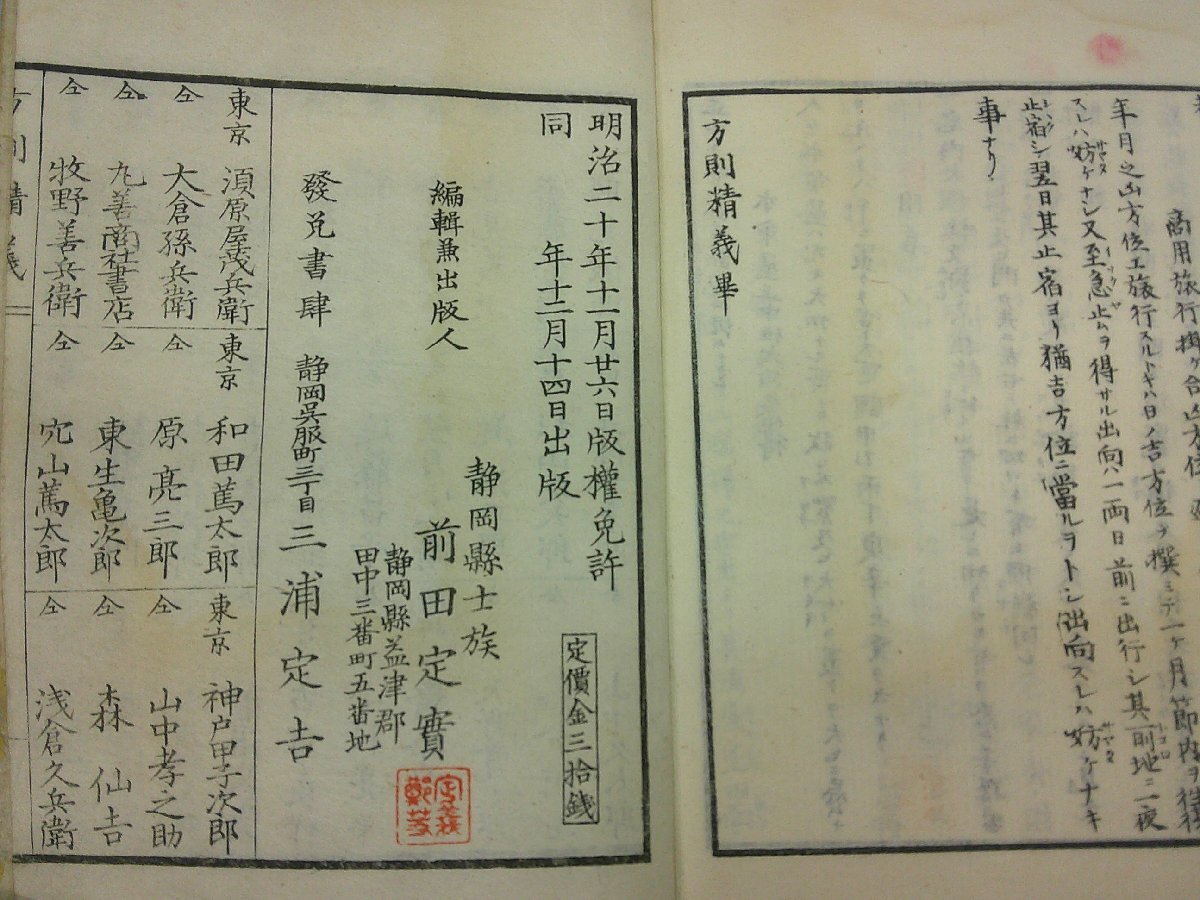 商用旅行掛ケ合
年月之凶方位エ旅行スルトキハ日ノ吉方位ヲ撰ミテ一ケ月節内ヲ
スレハ妨ケナシ又至急止ムヲ得サル出向ハ一両日前ニ出行シ其前地ニ一夜
止宿シ翌日其止宿ヨリ猶吉方位ニ當ルヲトシ出向スレハ妨ケナキ
事ナリ
方則精義畢
明治二十年十一月廿六日版權免許
同 年十二月十四日出版
定價金三拾錢
編輯兼出版人
静岡縣士族
前田定實
静岡縣益津郡
田中三番町五番地
發兌書肆 静岡呉服町三丁目 三浦定吉
東京 須原屋茂兵衛
仝 大倉孫兵衛
仝 丸善商社書店
仝 牧野善兵衛
東京 和田篤太郎
仝 原亮三郎
仝 東生亀次郎
仝 穴山篤太郎
東京 神戸甲子次郎
仝 山中孝之助
仝 森仙吉
仝 浅倉久兵衛
方則精義